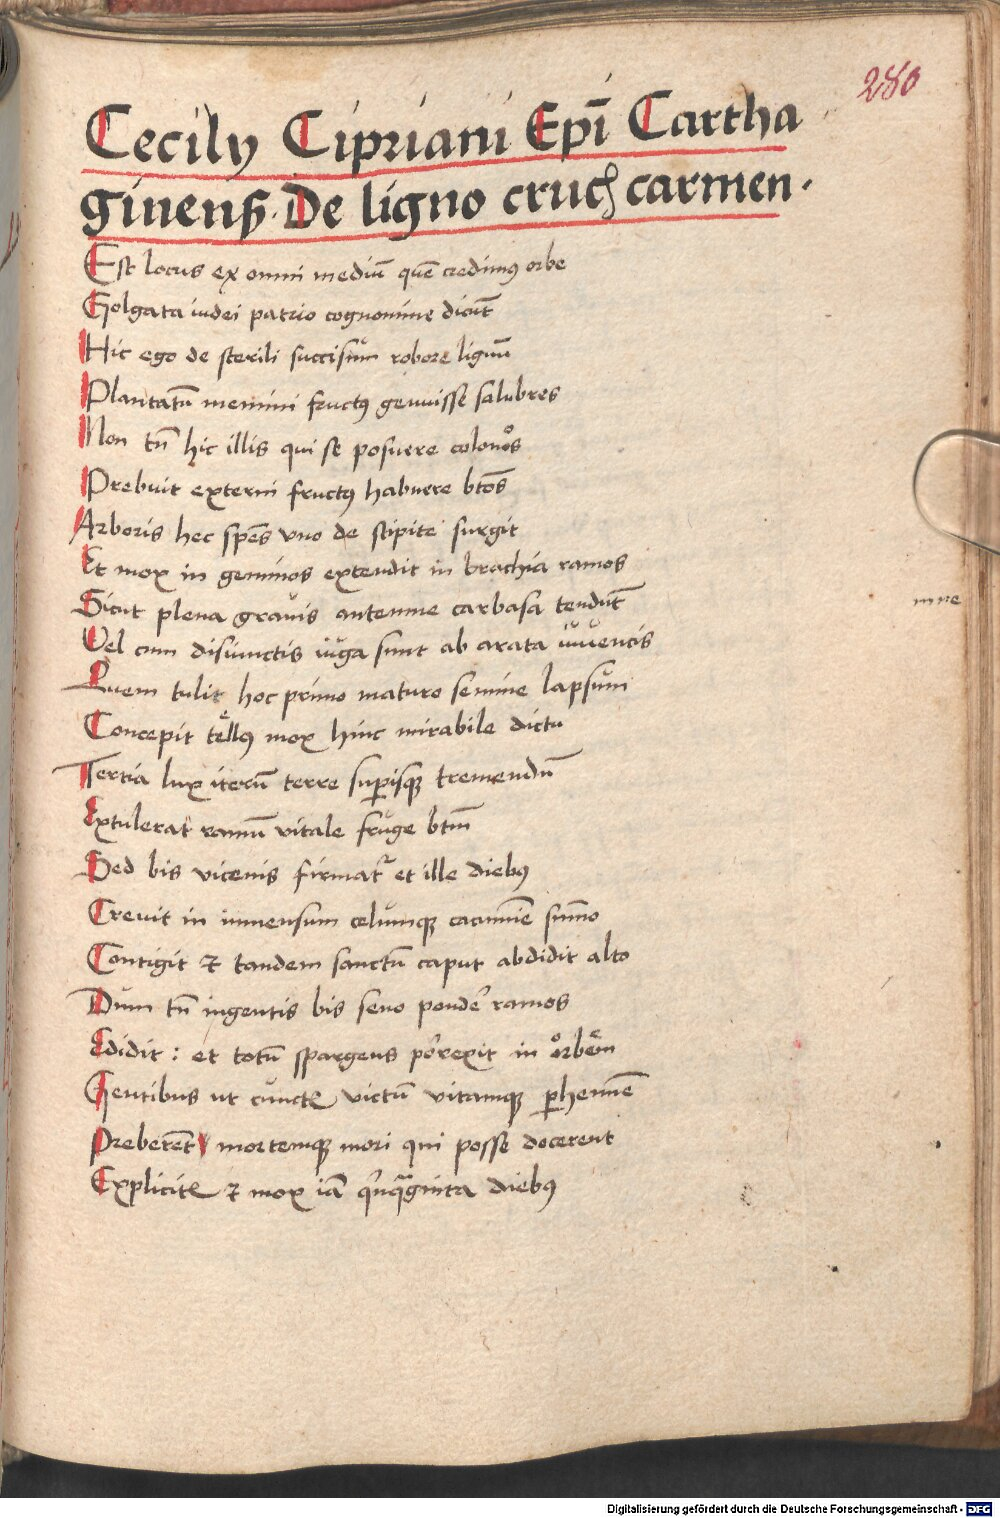 280
Cecilÿ Cipriani Epī Cartha
ginenß. De ligno cruc̄ carmen.
Est locus ex omni mediū quē credimꝰ orbe
Golgata iudei patrio cognomine dicūt
Hic ego de sterili succisum robore lignū
Plantatū memini fructꝰ genuisse salubres
Non tn̄ hic illis qui se posuere colonos
Prebuit externi fructꝰ habuere btōs
Arboris hec spēs vno de stipite surgit
Et mox in geminos extendit in brachia ramos
Sicut plena grauis antenne carbasa tendūt
Vel cum disiunctis iuga sunt ab arata iuuencis
Quem tulit hoc primo maturo semine lapsum
Concepit tellꝰ mox hinc mirabile dictu
Tertia lux iterū terre supisqꝫ tremendū
Extulerat ramū vitale fruge btm̄
Sed bis vicenis firmatr̄ et ille diebꝰ
Creuit in inmensum celumqꝫ cacumīe sūmo
Contigit ⁊ tandem sanctū caput abdidit alto
Dum tn̄ ingentis bis seno pondeʳ ramos
Edidit : et totū spargens porexit in orbem
Gentibus ut cunctꝭ victū vitamqꝫ ꝑhennē
Preberēt mortemqꝫ mori qui posse docerent
Explicitꝭ ⁊ mox iā qͥnqᵃginta diebꝰ
Digitalisierung gefördert durch die Deutsche Forschungsgemeinschaft - DFG